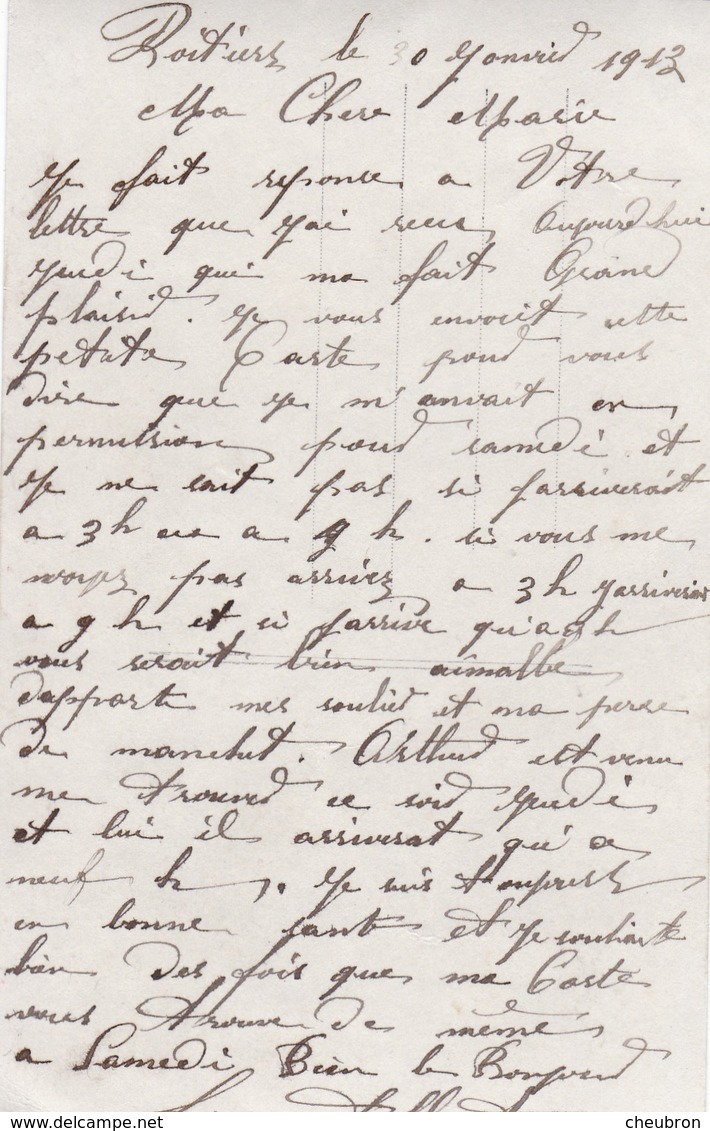 Poitiers le 30 Janvied 1913
Ma Chere Marie
Je fait reponse a Votre
lettre que jai recu Aujourdhui
jeudi qui ma fait Grand
plaisid. Je vous envoit cette
petite Carte poud vous
dire que je m'anvait en
permission poud samedi et
Je ne sait pas si jarriverait
a 3h ou a 9 h. si vous me
voyez pas arrivez a 3h jarriverait
a 9 h et si jarrive qua 9h
vous serait bien aimalbe
dapporte mes soulied et ma perre
de manchet. Arthud est venu
me trouved ce soid jeudi
et lui il arriverat qu'a
neuf h. Je suis toujours
en bonne sante et Je souhaite
bien des fois que ma Carte
vous trouve de même
a Samedi Bien le Bonjoud
cheubron